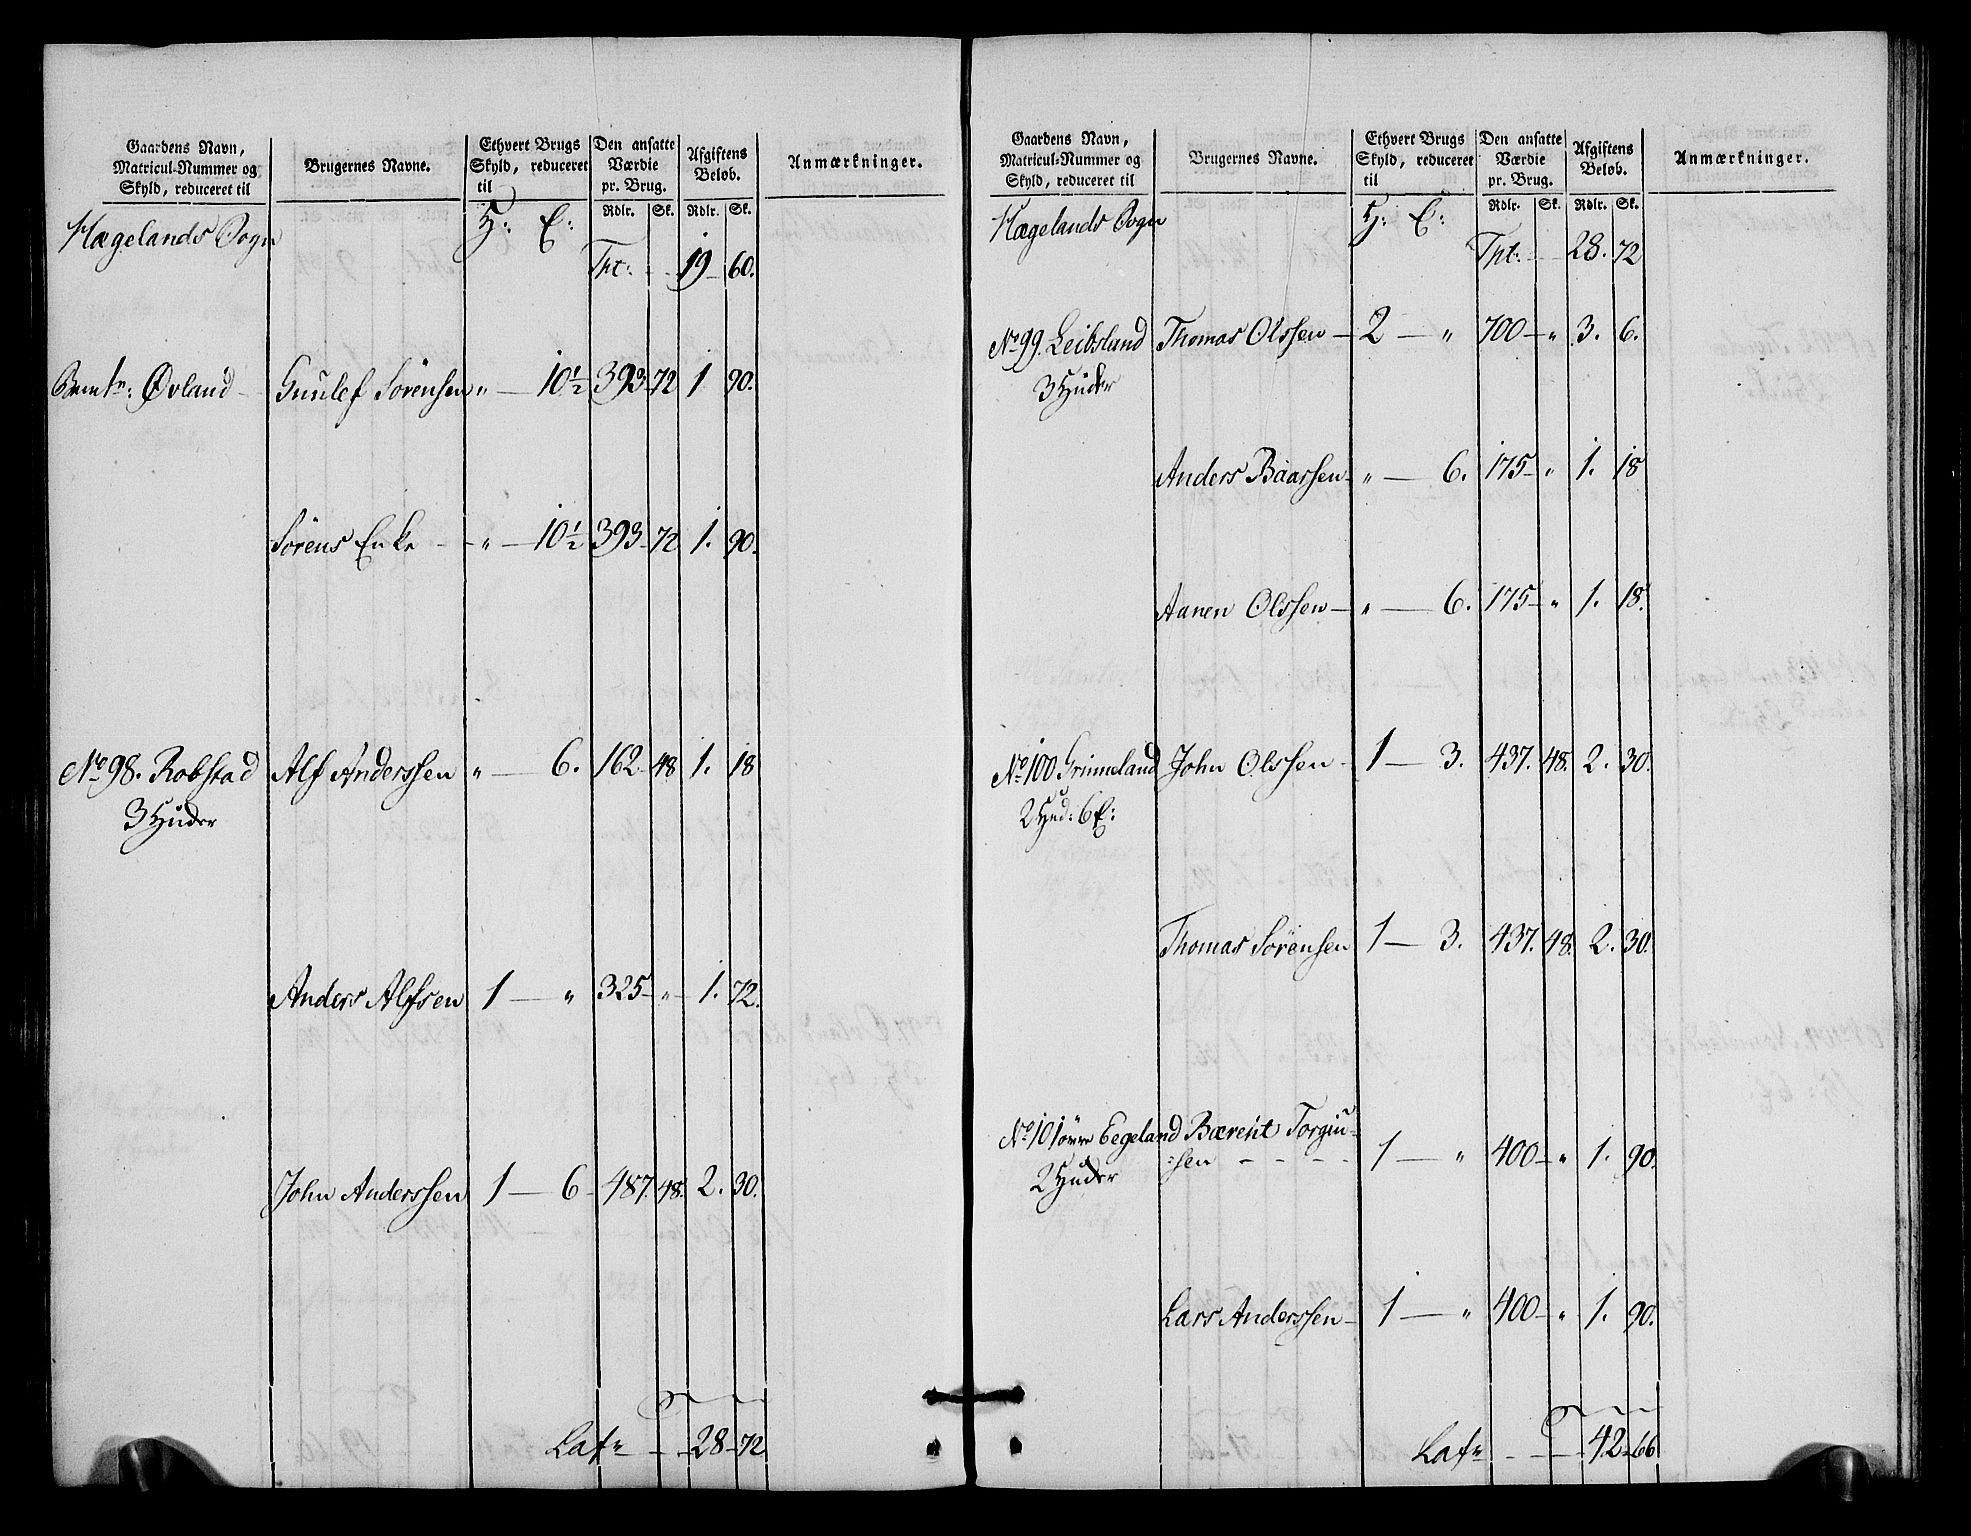 Gaardens Navn, Matricul-Nummer og Skyld, reduceret til | Brugernes Navne. | Ethvert Brugs Skyld, reduceret til | Den ansatte Værdie pr. Brug. | Afgiftens Beløb. | Anmærkninger.
Rdlr. | Sk. | Rdlr. | Sk.
Hægelands Sogn H: E:
Tpt: 19 60.
Øvland Gunlef Sörensen " 10½ 393 72 1 90.
Sörens Enke " 10½ 393 72 1. 90.
No 98. Robstad Alf Anderssen " 6. 162 48 1. 18
3 Huder
Anders Alfsen 1 " 325 " 1. 72.
John Anderssen 1 6 487. 48. 2. 30.
Lat 28 72
Gaardens Navn, Matricul-Nummer og Skyld, reduceret til | Brugernes Navne. | Ethvert Brugs Skyld, reduceret til | Den ansatte Værdie pr. Brug. | Afgiftens Beløb. | Anmærkninger.
Rdlr. | Sk. | Rdlr. | Sk.
Hægelands Sogn H: E:
Tpt: 28. 72
No 99. Leibsland Thomas Olssen 2 " 700 " 3. 6.
3 Huder
Anders Baarsen " 6. 175 " 1. 18
Aanen Olssen " 6. 175 " 1. 18.
No 100 Grimeland John Olssen 1 3. 437. 48. 2. 30.
2 Hud: 6 E:
Thomas Sörensen 1 3. 437. 48. 2. 30.
No 101 övre Eegeland Bærent Torgiu-
2 Huder :sen 1 " 400 " 1. 90.
Lars Anderssen 1 " 400 " 1. 90.
Lat 42 66